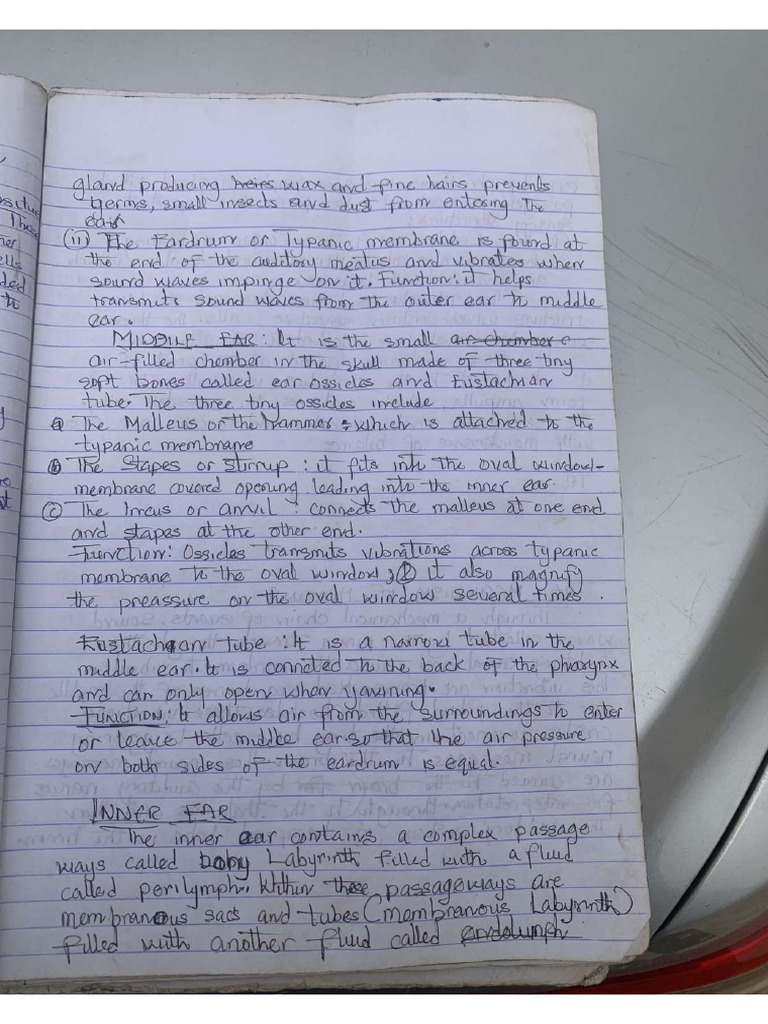 gland producing heirs wax and fine hairs prevents
germs, small insects and dust from entosing the
ear
(ii) The Eardrum or Typanic membrane is found at
the end of the auditory meatus and vibrates when
sound waves impinge on it. Function: it helps
transmits sound waves from the outer ear to middle
ear.
MIDDLE EAR: It is the small air chamber
air-filled chamber in the skull made of three tiny
soft bones called ear ossicles and Eustachian
tube. The three tiny ossicles include
(a) The Malleus or the hammer: which is attached to the
typanic membrane
(b) The Stapes or stirrup: it fits into the oval window-
membrane covered opening leading into the inner ear.
(c) The Incus or anvil: connects the malleus at one end
and stapes at the other end.
Function: Ossicles transmits vibrations across typanic
membrane to the oval window; (2) it also magnify
the preassure on the oval window several times.
Eustachian tube: It is a narrow tube in the
middle ear. It is conncted to the back of the pharynx
and can only open when yawning.
FUNCTION: It allows air from the surroundings to enter
or leave the middle ear so that the air pressure
on both sides of the eardrum is equal.
INNER EAR
The inner ear contains a complex passage
ways called bony Labyrinth filled with a fluid
called perilymph. Within these passageways are
membranous sacs and tubes (membranous Labyrinth)
filled with another fluid called endolumph